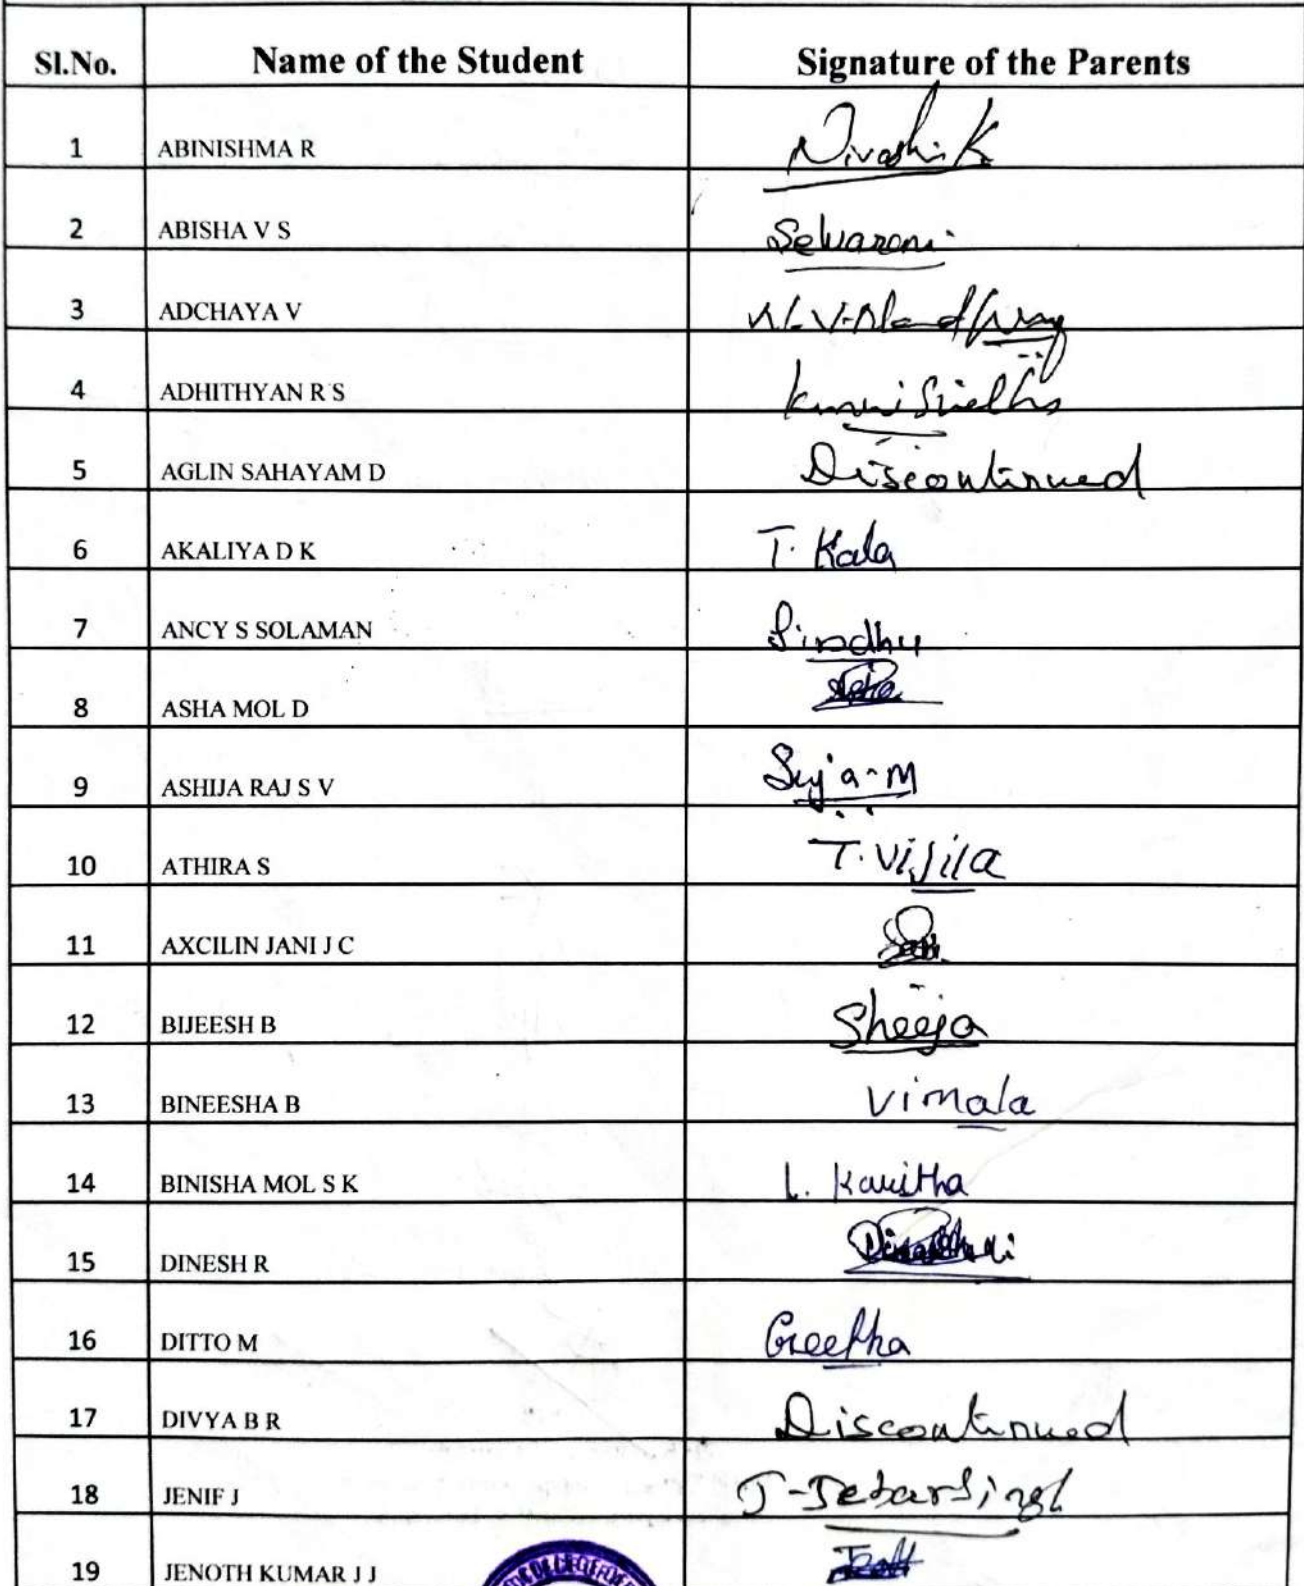 Sl.No. Name of the Student Signature of the Parents
1 ABINISHMA R
2 ABISHA V S Selvarani
3 ADCHAYA V
4 ADHITHYAN R S
5 AGLIN SAHAYAM D Discontinued
6 AKALIYA D K T. Kala
7 ANCY S SOLAMAN Sindhu
8 ASHA MOL D
9 ASHIJA RAJ S V Suja-M
10 ATHIRA S T. Vijila
11 AXCILIN JANI J C
12 BIJEESH B Sheeja
13 BINEESHA B Vimala
14 BINISHA MOL S K L. Kavitha
15 DINESH R
16 DITTO M Geetha
17 DIVYA B R Discontinued
18 JENIF J J-Jebarsingh
19 JENOTH KUMAR J J